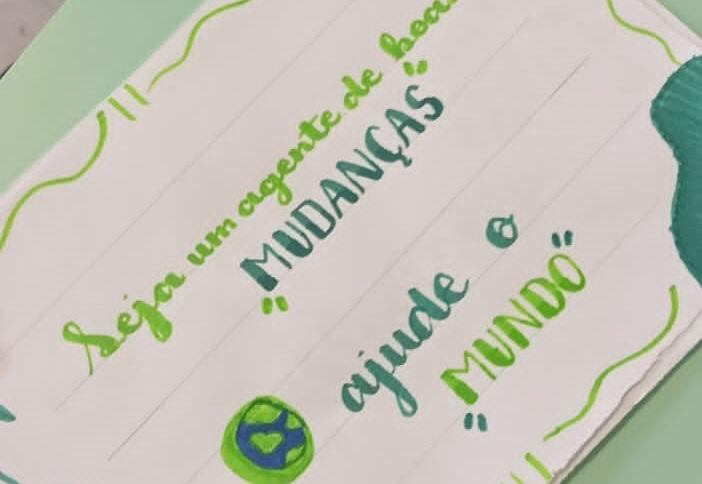 Seja um agente de boas
"MUDANÇAS"
ajude o
"MUNDO"